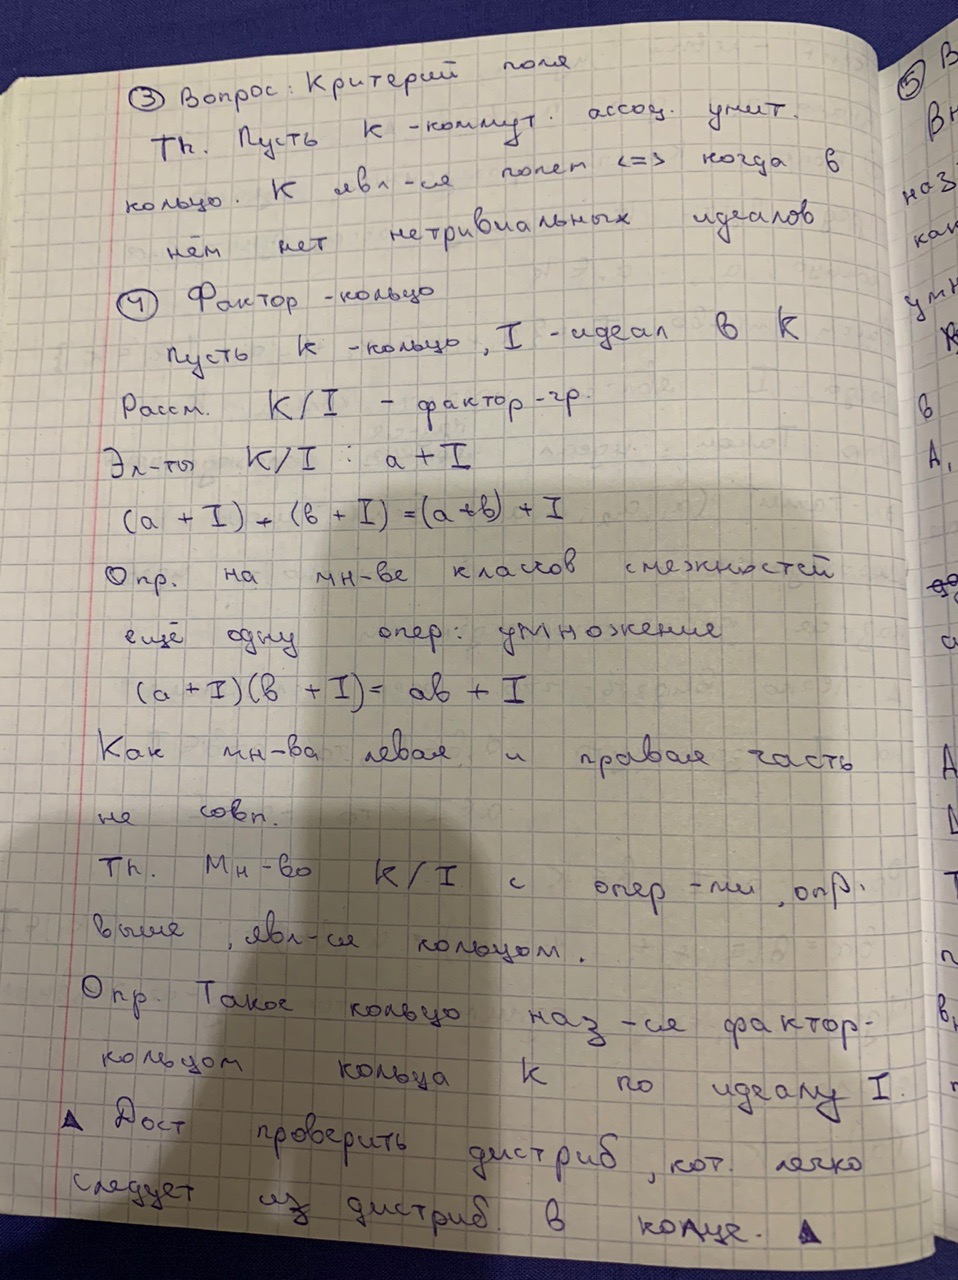 ③ Вопрос: Критерий поля
Th. Пусть K - коммут. ассоц. унит.
кольцо. K явл-ся полем <=> когда в
нём нет нетривиальных идеалов
④ Фактор - кольцо
Пусть K - кольцо, I - идеал в K
Рассм. K/I - фактор-гр.
Эл-ты K/I : a + I
(a + I) + (в + I) = (a + в) + I
Опр. на мн-ве классов смежностей
ещё одну опер: умножение
(a + I)(в + I) = aв + I
Как мн-ва левая и правая часть
не совп.
Th. Мн-во K/I с опер-ми, опр.
выше, явл-ся кольцом.
Опр. Такое кольцо наз-ся фактор-
кольцом кольца K по идеалу I.
▲ Дост проверить дистриб, кот. легко
следует из дистриб. в конце. ▲
⑤ В
наз
как
в